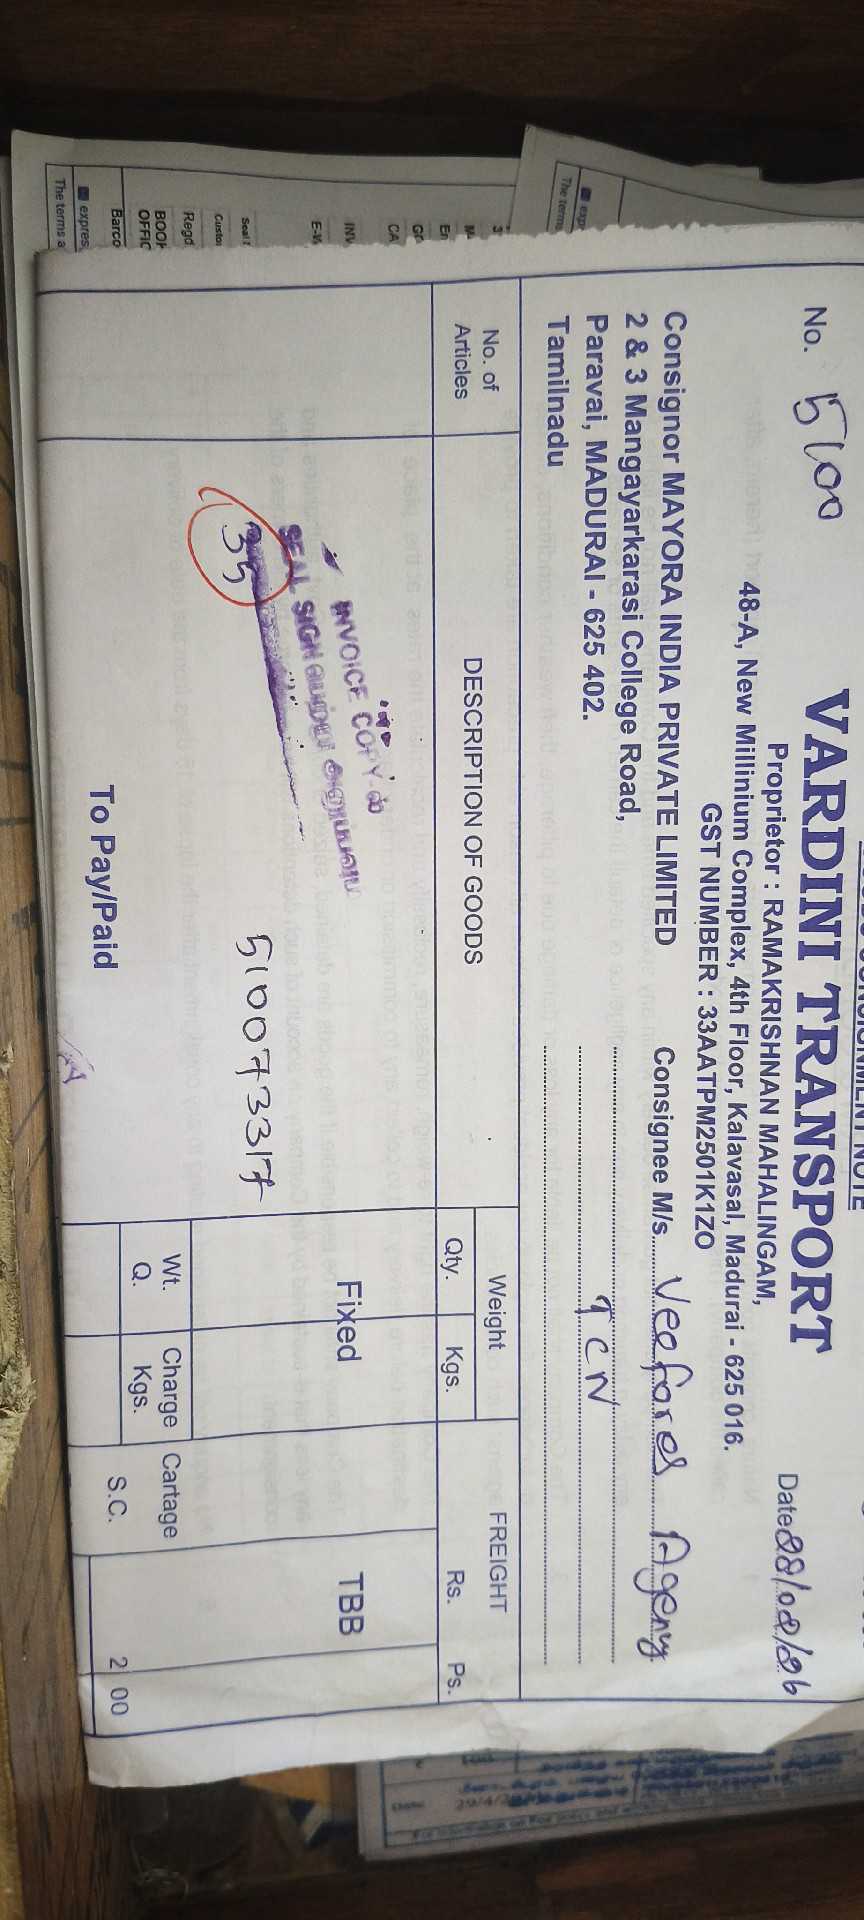 CONSIGNMENT NOTE
No. 5100
VARDINI TRANSPORT
Proprietor : RAMAKRISHNAN MAHALINGAM,
48-A, New Millinium Complex, 4th Floor, Kalavasal, Madurai - 625 016.
GST NUMBER : 33AATPM2501K1ZO
Date
Consignor MAYORA INDIA PRIVATE LIMITED
2 & 3 Mangayarkarasi College Road,
Paravai, MADURAI - 625 402.
Tamilnadu
Consignee M/s. Veefores Agency
TCN
No. of Articles
DESCRIPTION OF GOODS
Weight
Qty. Kgs.
FREIGHT
Rs. Ps.
INVOICE COPY-ல்
SEAL SIGN வைத்து அனுப்பவும்
35
510073317
Fixed
TBB
Wt. Q.
Charge Kgs.
Cartage
S.C. 2 00
To Pay/Paid
The terms
The terms a
expres
Barco
BOOK
OFFIC
Regd
Custo
Seal
E-W
INV
CA